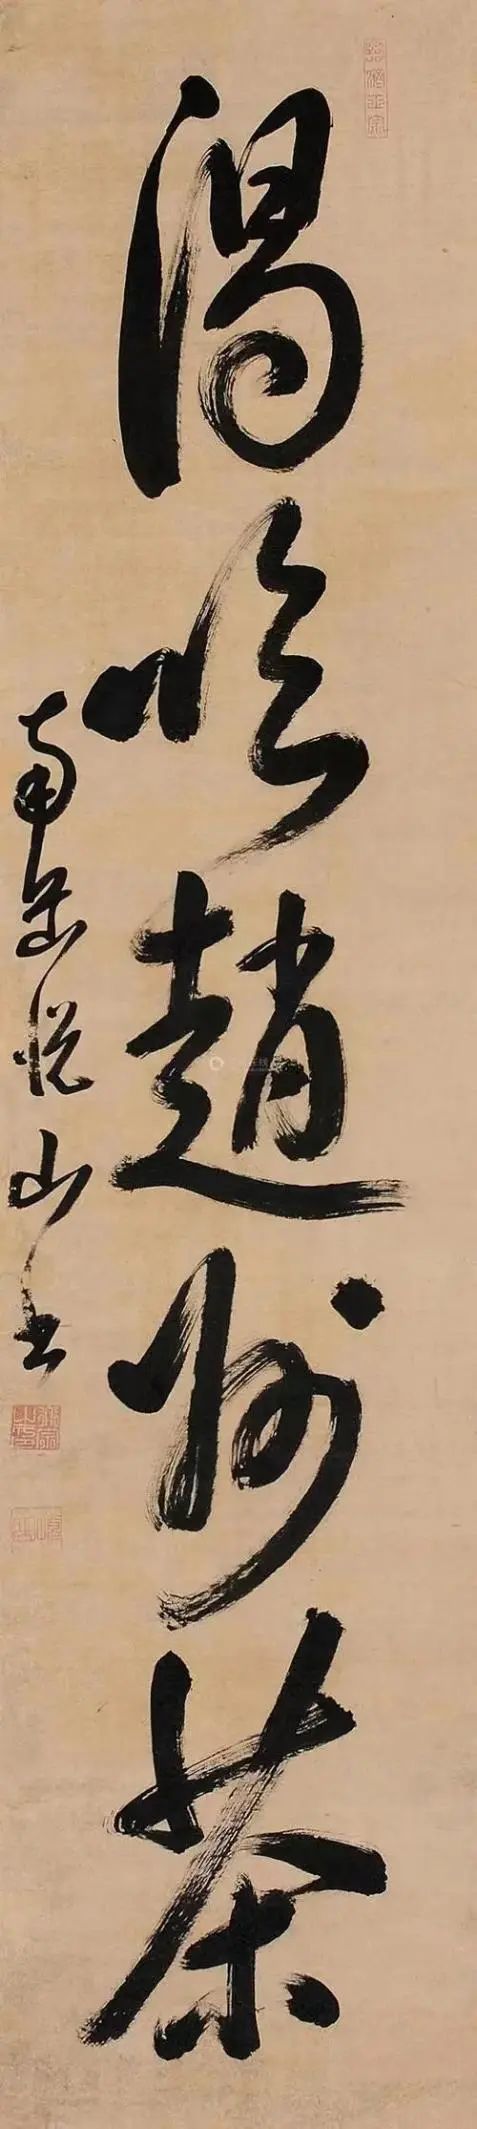 渴飲趙州茶
南岳悅山書